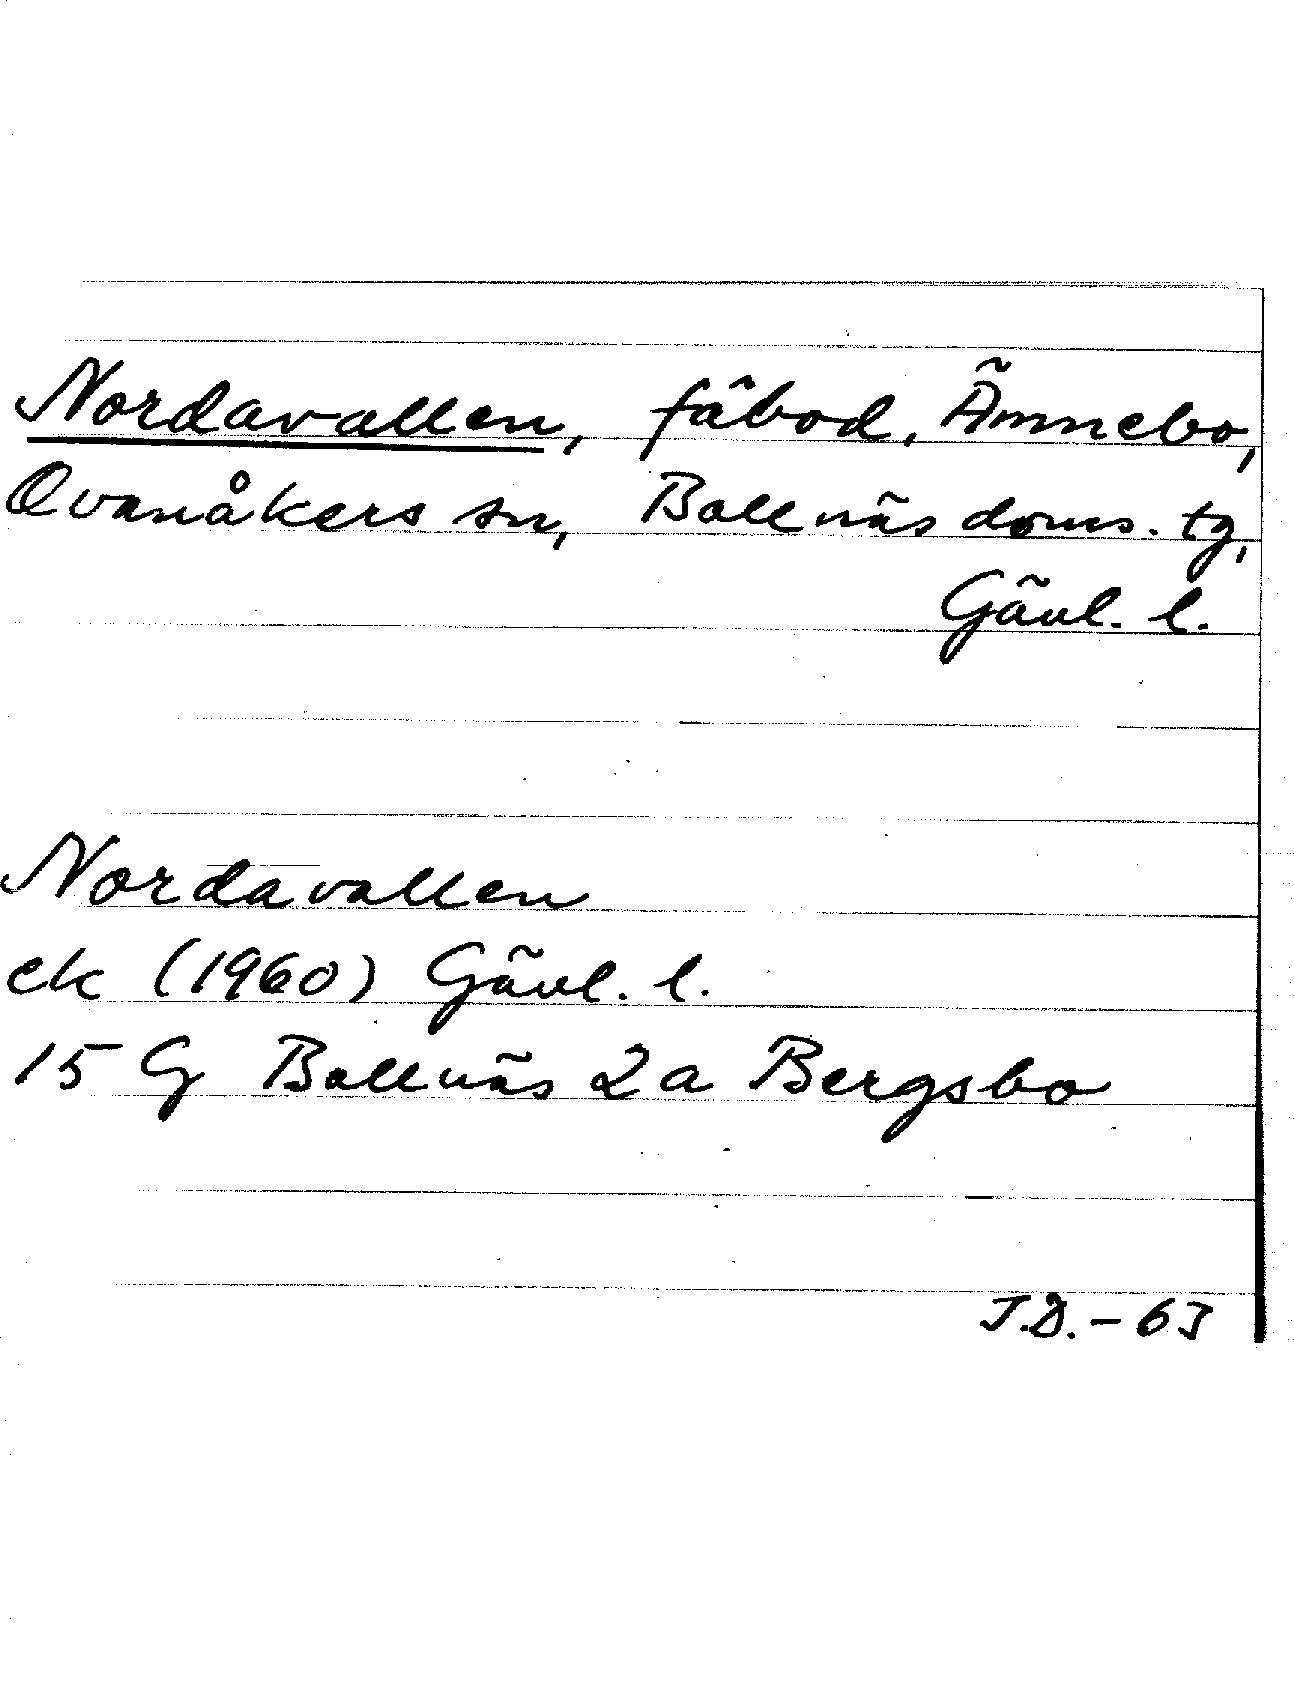 Nordavallen, fäbod, Ämnebo,
Ovanåkers sn, Bollnäs doms. tg,
Gävl. l.
Nordavallen
ek (1960) Gävl. l.
15 G Bollnäs 2a Bergsbo
J.D. - 63